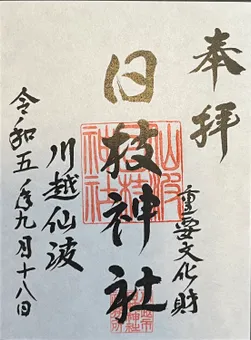 奉拝
重要文化財
日枝神社
川越仙波
令和五年九月十八日